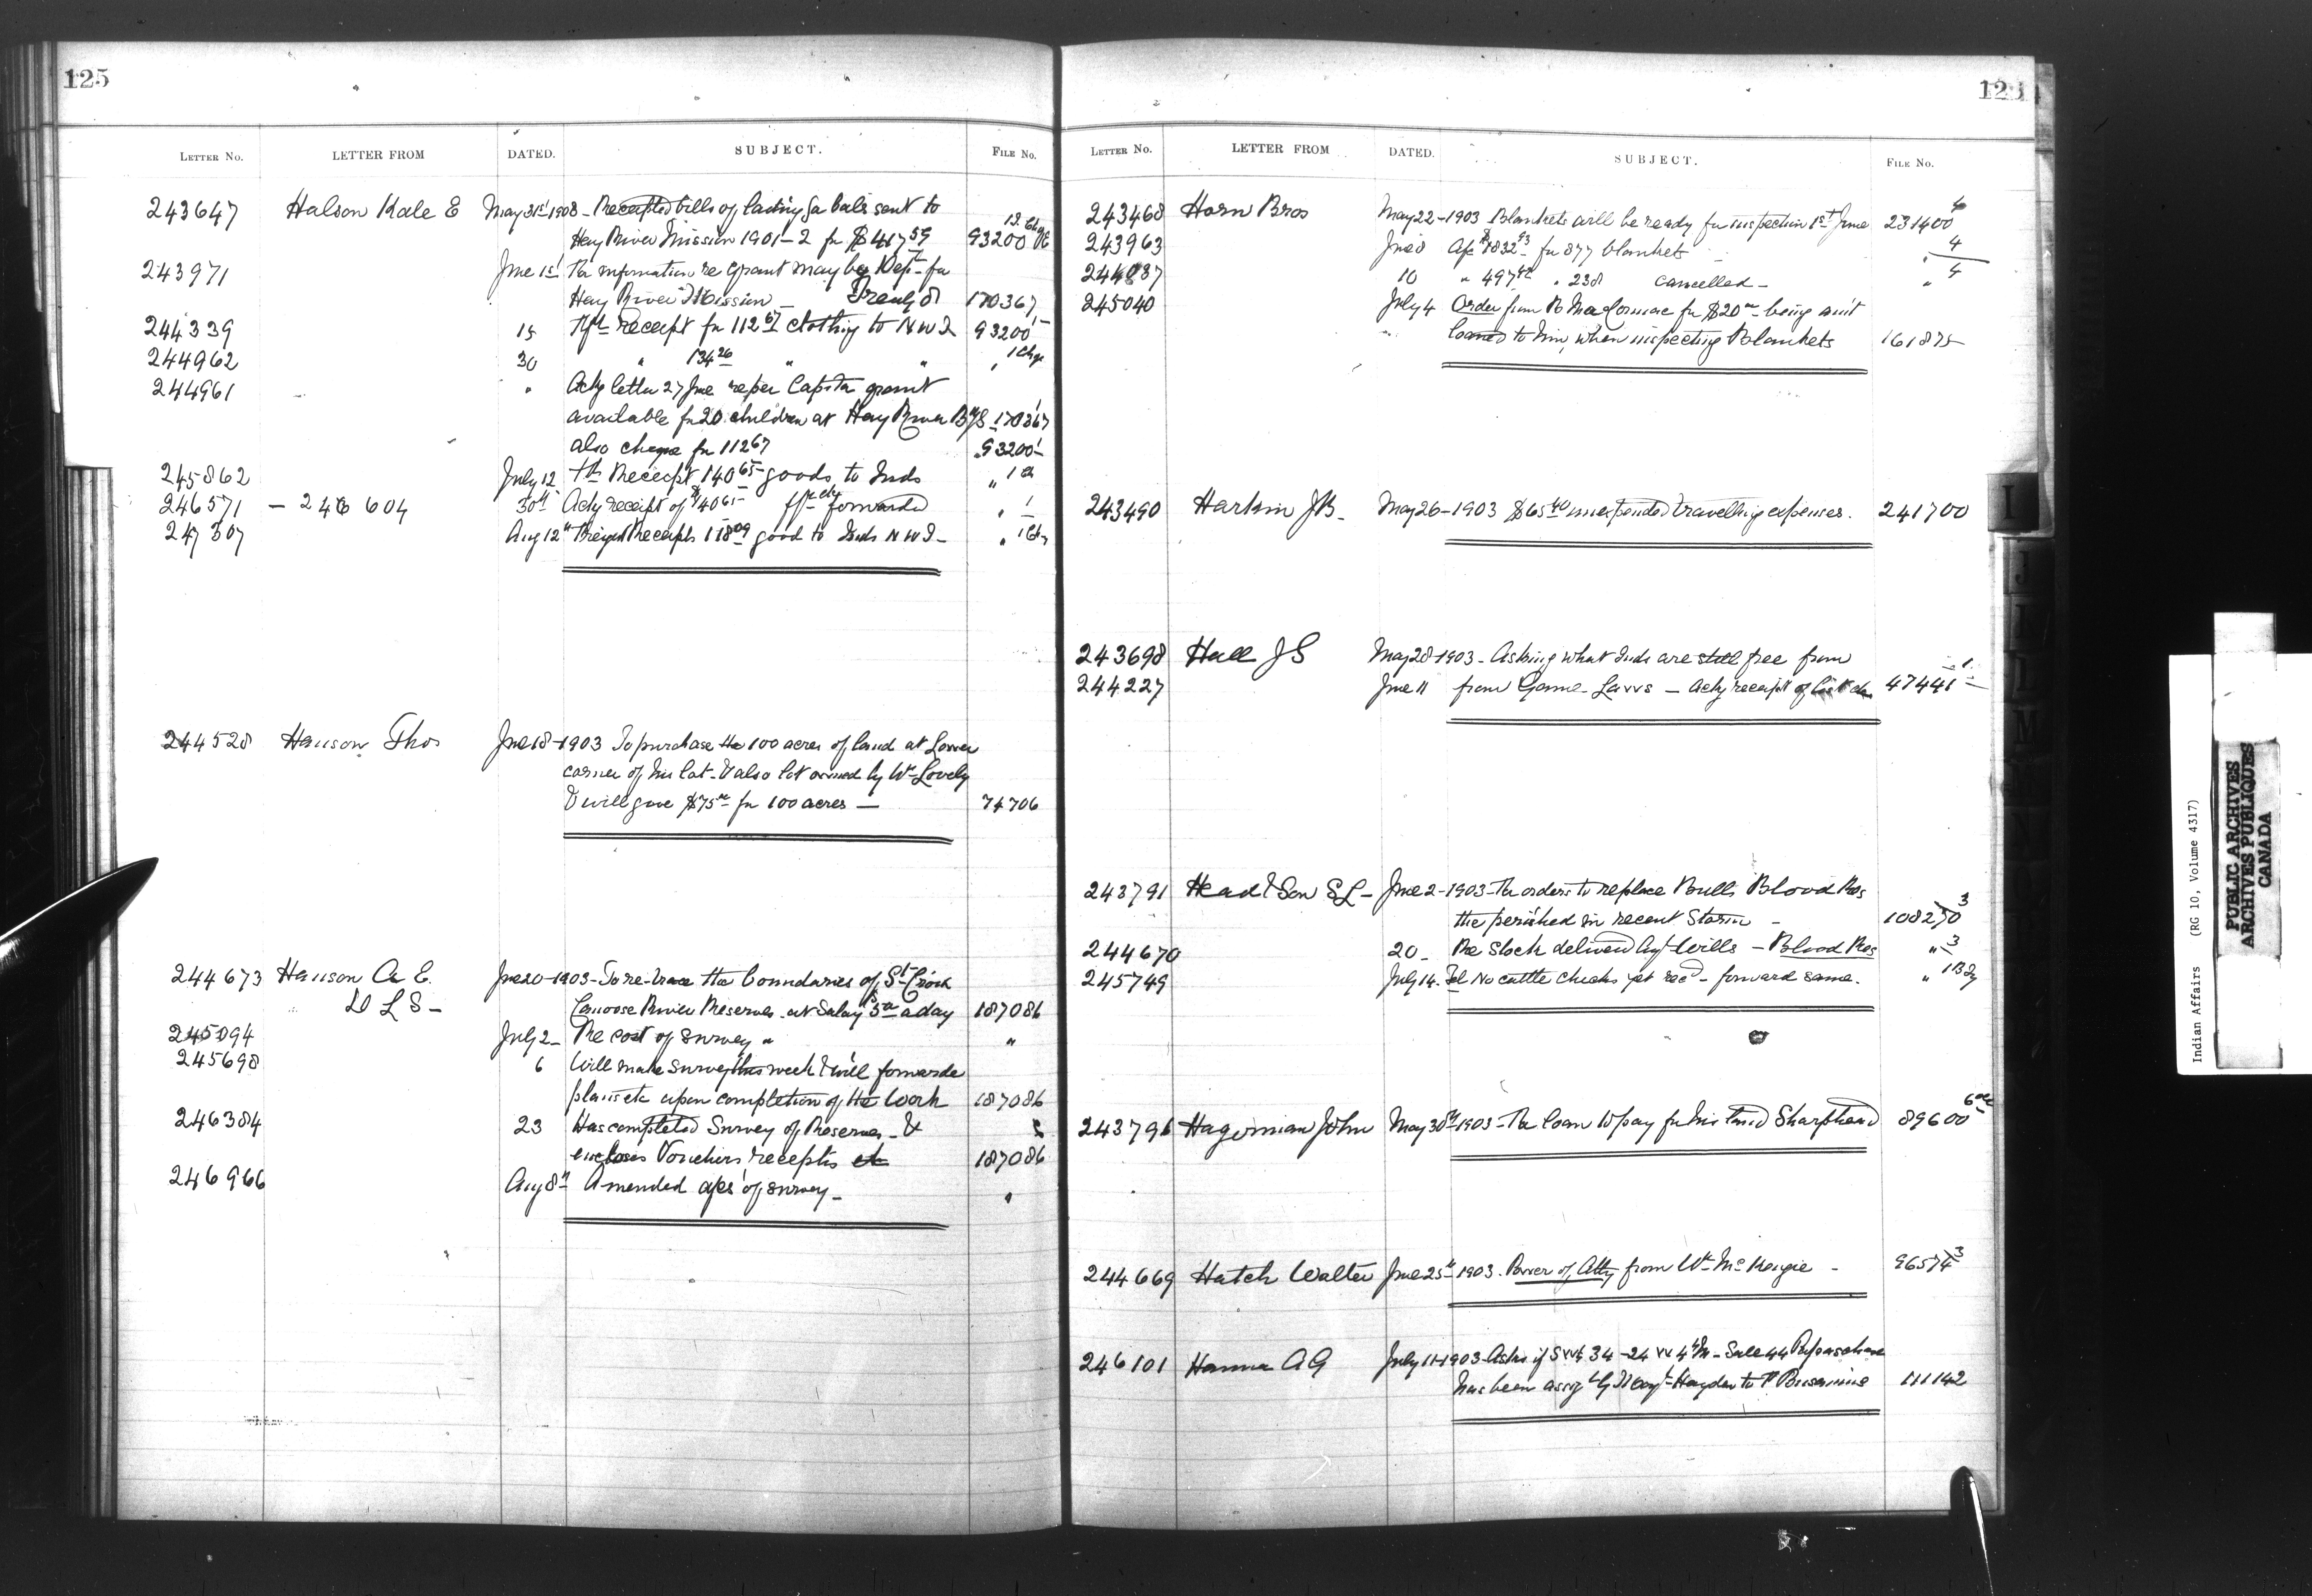 125
LETTER No. LETTER FROM DATED. SUBJECT. FILE No.
243647 Halson Kate E May 31st 1908 - Receipted bills of lading for bale sent to
Hay River Mission 1901-2 for $417 59 93200
243971 June 1st Re information re grant may by Dept for
Hay River Mission 170367
244339 15 receipt for 112 67 clothing to N W T 93200
244962 30 " 134 26 " " "
244961 " Ackg letter 27 June re per Capita grant
available for 20 children at Hay River 170367
also cheque for 112 67 93200
245862 July 12 Receipt 140 65 goods to Inds "
246571 - 246604 30th Ackg receipt of $140 65 forwarded "
247307 Aug 12th Freight Receipts 118 09 good to Inds N W T - "
244528 Hanson Thos June 18-1903 To purchase the 100 acres of land at Lower
corner of his lot - & also lot owned by Wm Lovely
& will give $75 for 100 acres — 74706
244673 Hanson A E. June 20-1903 - To re-trace the boundaries of St Croix
D L S - Canoose River Reserves at Salary 5 a day 187086
245094 July 2 - Re cost of survey " "
245698 6 Will make survey this week & will forwarde
plans etc upon completion of the work 187086
246384 23 Has completed Survey of Reserves - &
encloses Vouchers receipts etc 187086
246966 Aug 8th Amended a/cs of survey - "
LETTER No. LETTER FROM DATED. SUBJECT. FILE No.
243468 Horn Bros May 22-1903 Blankets will be ready for inspection 1st June 231400 4
243963 June 8 a/c $1832 93 for 877 blankets " 4
244087 10 " 497 42 " 238 cancelled - " 4
245040 July 4 Order from for $20 - being amt
loaned to him when inspecting Blankets 161875
243490 Harkin J B - May 26-1903 $65 40 unexpended travelling expenses. 241700
243698 Hall J S May 28-1903 - Asking what Inds are still free from
244227 June 11 from Game Laws — Ackg receipt of 47441 1
243791 Head & Son S L - June 2-1903 - Re orders to replace Bulls Blood Res
the perished in recent Storm - 108270 3
244670 20 - Re Stock delivered Agt Wills - Blood Res " 3
245749 July 14. Tel No cattle checks yet recd - forward same. "
243796 Hagerman John May 30th 1903 - Re loan to pay for his land Sharphead 89600
244669 Hatch Walter June 25th 1903. Power of Atty from Wm McKenzie - 96574 3
246101 Hanna A G July 11-1903 - Asks if SW¼ 34-24 W 4th M - Sale 44
has been assigd by Hayden to 111142
I
J
L
M
N
Indian Affairs (RG 10, Volume 4317)
PUBLIC ARCHIVES
ARCHIVES PUBLIQUES
CANADA